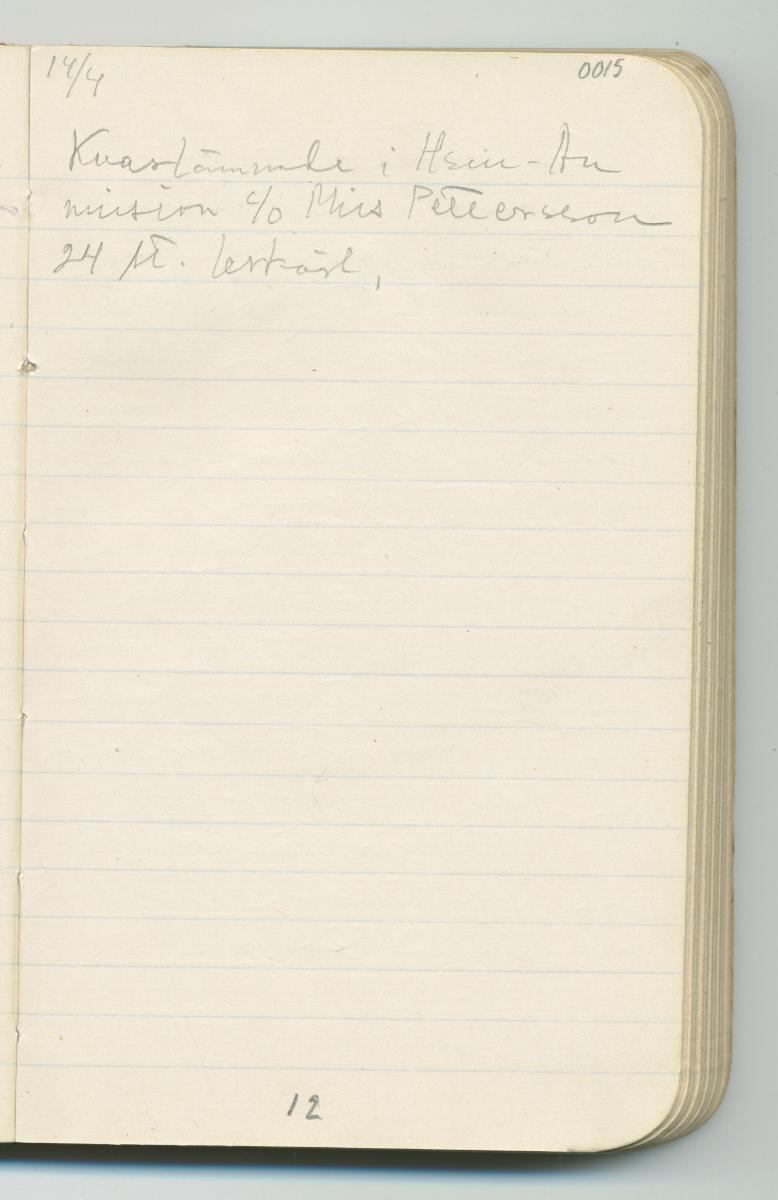 14/4
0015
Kvarlämnade i Hsin-An
mission c/o Miss Pettersson
24 st. lerkärl,
12